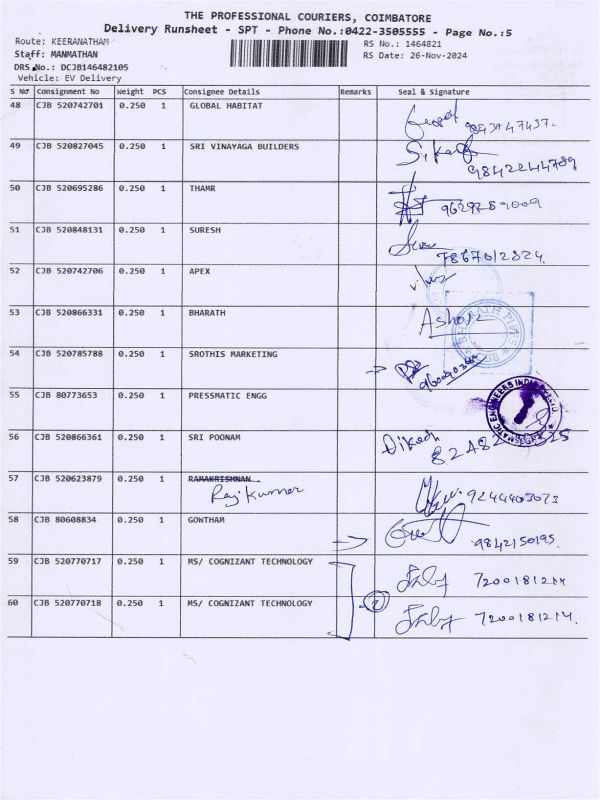 THE PROFESSIONAL COURIERS, COIMBATORE
Delivery Runsheet - SPT - Phone No.:0422-3505555 - Page No.:5
Route: KEERANATHAM
RS No.: 1464821
Staff: MANMATHAN
RS Date: 26-Nov-2024
DRS No.: DCJB146482105
Vehicle: EV Delivery
S No Consignment No Weight PCS Consignee Details Remarks Seal & Signature
48 CJB 520742701 0.250 1 GLOBAL HABITAT
49 CJB 520827045 0.250 1 SRI VINAYAGA BUILDERS 9842244789
50 CJB 520695286 0.250 1 THAMR 9629289009
51 CJB 520848131 0.250 1 SURESH 7867012824.
52 CJB 520742706 0.250 1 APEX
53 CJB 520866331 0.250 1 BHARATH Ashok
54 CJB 520785788 0.250 1 SROTHIS MARKETING
55 CJB 80773653 0.250 1 PRESSMATIC ENGG
56 CJB 520866361 0.250 1 SRI POONAM
57 CJB 520623879 0.250 1 RAMAKRISHNAN 9244403073
Rajkumar
58 CJB 80608834 0.250 1 GOWTHAM 9842150195.
59 CJB 520770717 0.250 1 MS/ COGNIZANT TECHNOLOGY 7200181214
60 CJB 520770718 0.250 1 MS/ COGNIZANT TECHNOLOGY 2 7200181214.